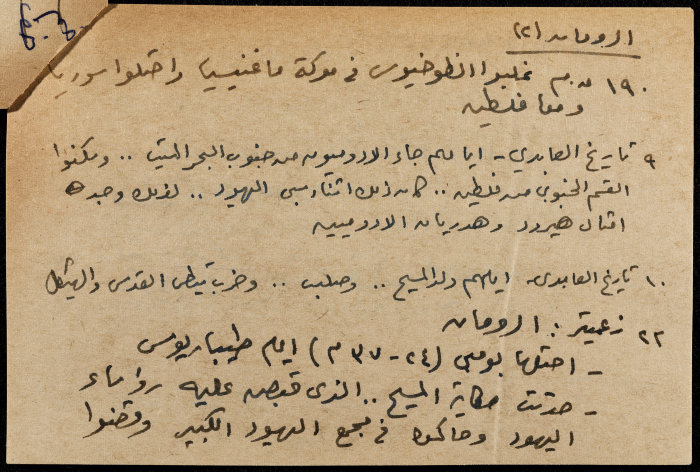 الرومان (٢)
١٩٠ ق.م غلبوا انطوخيوس في موكة ماغنيسيا واحتلوا سوريا
ومعها فلسطين
٩ تاريخ العابدي - ايامهم جاء الادوميون من جنوب البحر الميت .. وسكنوا
القسم الجنوبي من فلسطين .. كان ذلك اثناء سبي اليهود .. لذلك وجد
امثال هيرود وهدريان الادوميين
١٠ تاريخ العابدي - ايامهم ولد المسيح .. وصلب .. وخرب تيطس القدس والهيكل
٢٢ زعيتر : الرومان
- احتلها بومبي (٢٤ - ٣٧ م) ايام طيباريوس
- حدثت حكاية المسيح .. الذي قبض عليه رؤساء
اليهود وحاكموه في مجمع اليهود الكبير وقضوا